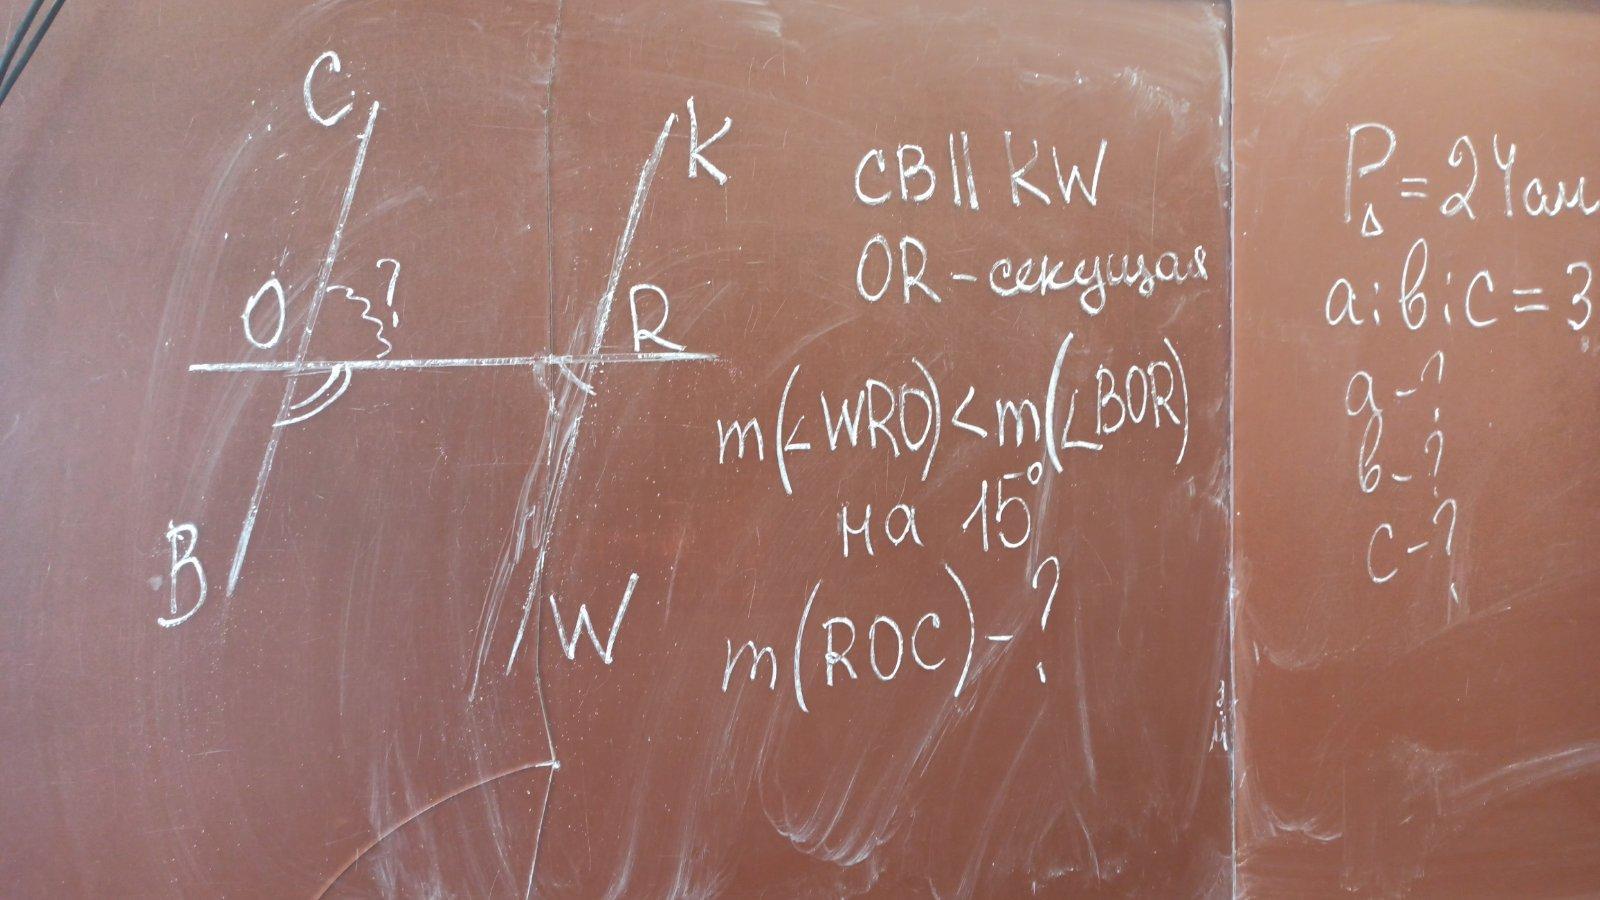 C
K
O
?
R
B
W
CB || KW
OR - секущая
m(∠WRO) < m(∠BOR)
на 15°
m(ROC) - ?
P△ = 24см
a : b : c = 3
a - ?
b - ?
c - ?